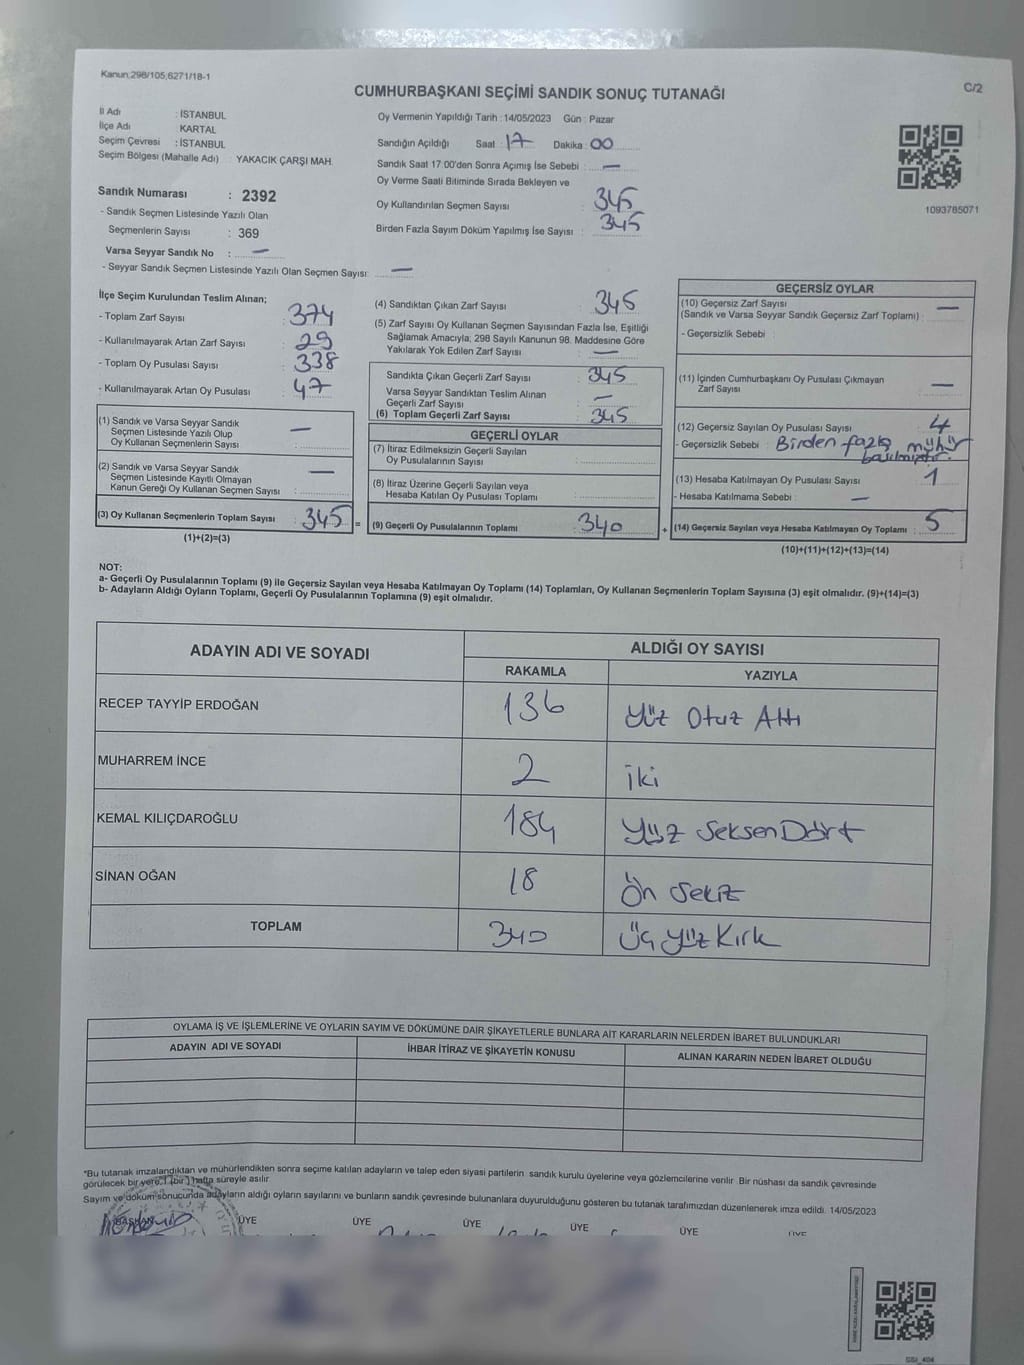 Kanun;298/105,6271/18-1
CUMHURBAŞKANI SEÇİMİ SANDIK SONUÇ TUTANAĞI
C/2
İl Adı : İSTANBUL
İlçe Adı : KARTAL
Seçim Çevresi : İSTANBUL
Seçim Bölgesi (Mahalle Adı) : YAKACIK ÇARŞI MAH.
Sandık Numarası : 2392
- Sandık Seçmen Listesinde Yazılı Olan
Seçmenlerin Sayısı : 369
Varsa Seyyar Sandık No : —
- Seyyar Sandık Seçmen Listesinde Yazılı Olan Seçmen Sayısı: —
Oy Vermenin Yapıldığı Tarih : 14/05/2023 Gün : Pazar
Sandığın Açıldığı Saat : 17 Dakika : 00
Sandık Saat 17:00'den Sonra Açımış İse Sebebi : —
Oy Verme Saati Bitiminde Sırada Bekleyen ve
Oy Kullandırılan Seçmen Sayısı : 345
Birden Fazla Sayım Döküm Yapılmış İse Sayısı : 345
1093785071
İlçe Seçim Kurulundan Teslim Alınan;
- Toplam Zarf Sayısı : 374
- Kullanılmayarak Artan Zarf Sayısı : 29
- Toplam Oy Pusulası Sayısı : 338
- Kullanılmayarak Artan Oy Pusulası : 47
(1) Sandık ve Varsa Seyyar Sandık
Seçmen Listesinde Yazılı Olup
Oy Kullanan Seçmenlerin Sayısı : —
(2) Sandık ve Varsa Seyyar Sandık
Seçmen Listesinde Kayıtlı Olmayan
Kanun Gereği Oy Kullanan Seçmen Sayısı : —
(3) Oy Kullanan Seçmenlerin Toplam Sayısı : 345 =
(1)+(2)=(3)
(4) Sandıktan Çıkan Zarf Sayısı : 345
(5) Zarf Sayısı Oy Kullanan Seçmen Sayısından Fazla İse, Eşitliği
Sağlamak Amacıyla; 298 Sayılı Kanunun 98. Maddesine Göre
Yakılarak Yok Edilen Zarf Sayısı : —
Sandıkta Çıkan Geçerli Zarf Sayısı : 345
Varsa Seyyar Sandıktan Teslim Alınan
Geçerli Zarf Sayısı : —
(6) Toplam Geçerli Zarf Sayısı : 345
GEÇERLİ OYLAR
(7) İtiraz Edilmeksizin Geçerli Sayılan
Oy Pusulalarının Sayısı :
(8) İtiraz Üzerine Geçerli Sayılan veya
Hesaba Katılan Oy Pusulası Toplamı :
(9) Geçerli Oy Pusulalarının Toplamı : 340 +
GEÇERSİZ OYLAR
(10) Geçersiz Zarf Sayısı
(Sandık ve Varsa Seyyar Sandık Geçersiz Zarf Toplamı) : —
- Geçersizlik Sebebi :
(11) İçinden Cumhurbaşkanı Oy Pusulası Çıkmayan
Zarf Sayısı : —
(12) Geçersiz Sayılan Oy Pusulası Sayısı : 4
- Geçersizlik Sebebi : Birden fazla mühür
basılmıştır.
(13) Hesaba Katılmayan Oy Pusulası Sayısı : 1
- Hesaba Katılmama Sebebi : —
(14) Geçersiz Sayılan veya Hesaba Katılmayan Oy Toplamı : 5
(10)+(11)+(12)+(13)=(14)
NOT:
a- Geçerli Oy Pusulalarının Toplamı (9) ile Geçersiz Sayılan veya Hesaba Katılmayan Oy Toplamı (14) Toplamları, Oy Kullanan Seçmenlerin Toplam Sayısına (3) eşit olmalıdır. (9)+(14)=(3)
b- Adayların Aldığı Oyların Toplamı, Geçerli Oy Pusulalarının Toplamına (9) eşit olmalıdır.
ADAYIN ADI VE SOYADI
ALDIĞI OY SAYISI
RAKAMLA YAZIYLA
RECEP TAYYİP ERDOĞAN 136 Yüz Otuz Altı
MUHARREM İNCE 2 iki
KEMAL KILIÇDAROĞLU 184 Yüz Seksen Dört
SİNAN OĞAN 18 Ön Sekiz
TOPLAM 340 Üç Yüz Kırk
OYLAMA İŞ VE İŞLEMLERİNE VE OYLARIN SAYIM VE DÖKÜMÜNE DAİR ŞİKAYETLERLE BUNLARA AİT KARARLARIN NELERDEN İBARET BULUNDUKLARI
ADAYIN ADI VE SOYADI İHBAR İTİRAZ VE ŞİKAYETİN KONUSU ALINAN KARARIN NEDEN İBARET OLDUĞU
"Bu tutanak imzalandıktan ve mühürlendikten sonra seçime katılan adayların ve talep eden siyasi partilerin sandık kurulu üyelerine veya gözlemcilerine verilir. Bir nüshası da sandık çevresinde
görülecek bir yere 1 (bir) hafta süreyle asılır.
Sayım ve döküm sonucunda adayların aldığı oyların sayılarını ve bunların sandık çevresinde bulunanlara duyurulduğunu gösteren bu tutanak tarafımızdan düzenlenerek imza edildi. 14/05/2023
BAŞKAN ÜYE ÜYE ÜYE ÜYE ÜYE ÜYE